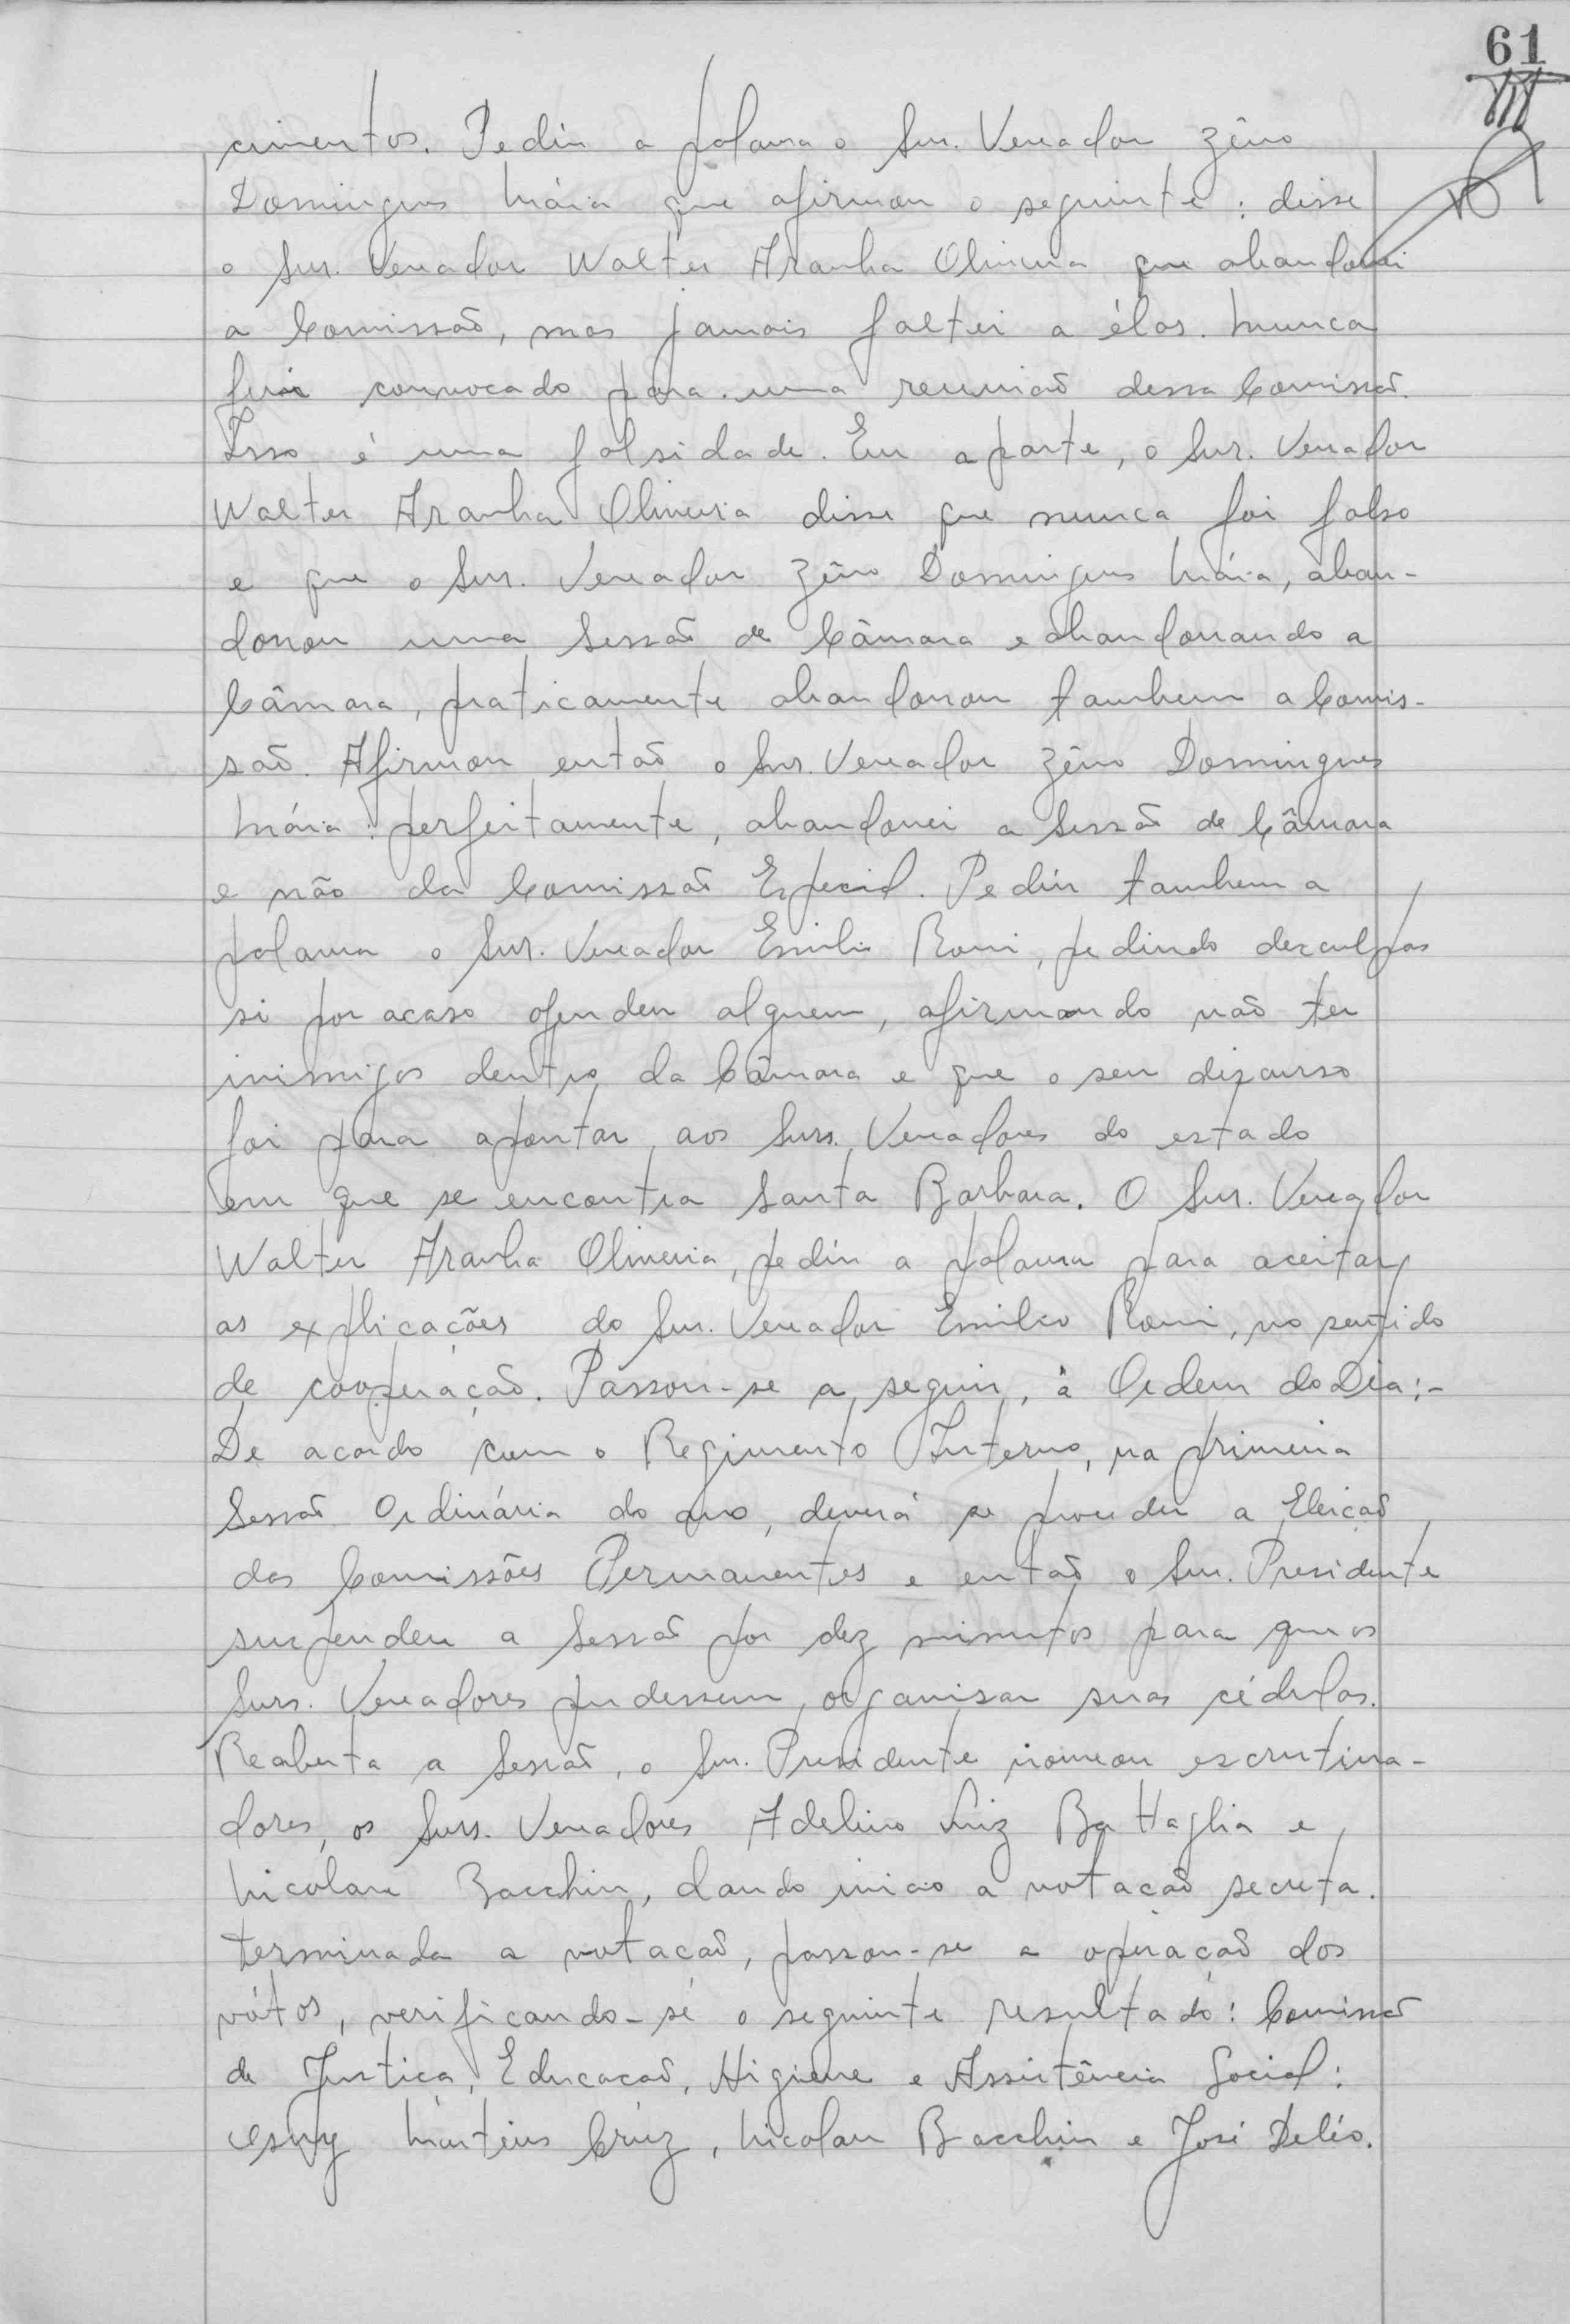 61
cimentos. Pediu a palavra o Snr. Vereador Zêno
Domingues Máia que afirmou o seguinte: disse
o Snr. Vereador Walter Aranha Oliveira que abandonei
a Comissão, mas jamais faltei a élas. Nunca
fui convocado para uma reunião dessa Comissão.
Isso é uma falsidade. Em aparte, o Snr. Vereador
Walter Aranha Oliveira disse que nunca foi falso
e que o Snr. Vereador Zêno Domingues Máia, aban-
donou uma Sessão de Câmara e abandonando a
Câmara, praticamente abandonou tambem a Comis-
são. Afirmou então o Snr. Vereador Zêno Domingues
Máia: perfeitamente, abandonei a Sessão de Câmara
e não da Comissão Especial. Pediu tambem a
palavra o Snr. Vereador Emilio Romi, pedindo desculpas
si por acaso ofendeu alguem, afirmando não ter
inimigos dentro da Câmara e que o seu discurso
foi para apontar aos Snrs. Vereadores do estado
em que se encontra Santa Barbara. O Snr. Vereador
Walter Aranha Oliveira, pediu a palavra para aceitar
as explicações do Snr. Vereador Emilio Romi, no sentido
de cooperação. Passou-se a seguir, à Ordem do Dia:-
De acordo com o Regimento Interno, na primeira
Sessão Ordinária do ano, deverá se proceder a Eleição
das Comissões Permanentes e então o Snr. Presidente
suspendeu a Sessão por dez minutos para que os
Snrs. Vereadores pudessem organisar suas cédulas.
Reaberta a Sessão, o Snr. Presidente nomeou escrutina-
dores, os Snrs. Vereadores Adelino Luiz Battaglia e
Nicolau Bacchin, dando inicio a votação secreta.
Terminada a votação, passou-se a operação dos
vótos, verificando-se o seguinte resultado: Comissão
de Justiça, Educação, Higiene e Assistência Social:
Martins Cruz, Nicolau Bacchin e José Deléo.